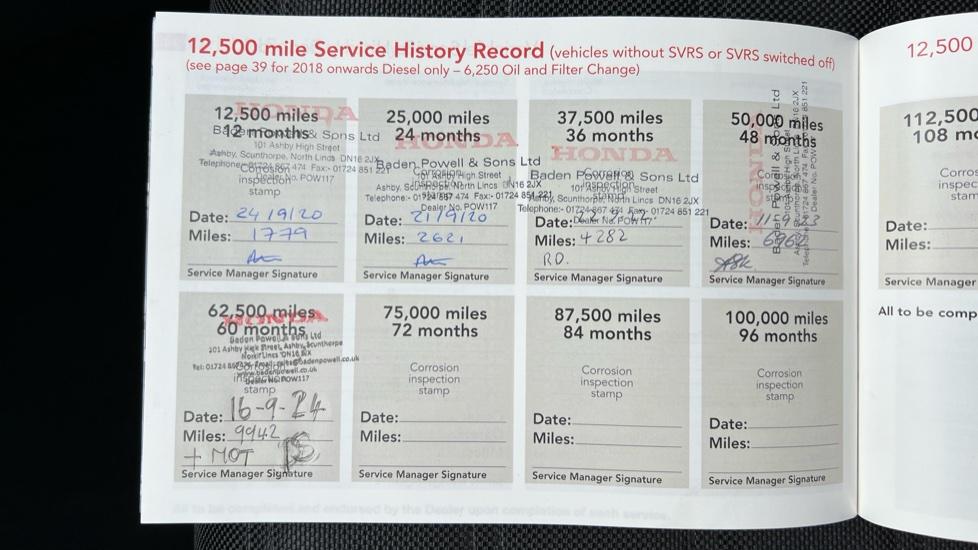 12,500 mile Service History Record (vehicles without SVRS or SVRS switched off)
(see page 39 for 2018 onwards Diesel only – 6,250 Oil and Filter Change)
12,500 miles
12 months
HONDA
Baden Powell & Sons Ltd
101 Ashby High Street
Ashby, Scunthorpe, North Lincs DN16 2JX
Telephone:- 01724 867 474 Fax:- 01724 851 221
Dealer No. POW117
Corrosion
inspection
stamp
Date: 24/9/20
Miles: 1779
Service Manager Signature
25,000 miles
24 months
HONDA
Baden Powell & Sons Ltd
101 Ashby High Street
Ashby, Scunthorpe, North Lincs DN16 2JX
Telephone:- 01724 867 474 Fax:- 01724 851 221
Dealer No. POW117
Corrosion
inspection
stamp
Date: 21/9/20
Miles: 2621
Service Manager Signature
37,500 miles
36 months
HONDA
Baden Powell & Sons Ltd
101 Ashby High Street
Ashby, Scunthorpe, North Lincs DN16 2JX
Telephone:- 01724 867 474 Fax:- 01724 851 221
Dealer No. POW117
Corrosion
inspection
stamp
Date:
Miles: 4282
R.D.
Service Manager Signature
50,000 miles
48 months
HONDA
Baden Powell & Sons Ltd
101 Ashby High Street
Ashby, Scunthorpe, North Lincs DN16 2JX
Telephone:- 01724 867 474 Fax:- 01724 851 221
Dealer No. POW117
Date:
Miles:
Service Manager Signature
62,500 miles
60 months
HONDA
Baden Powell & Sons Ltd
101 Ashby High Street, Ashby, Scunthorpe
North Lincs DN16 2JX
www.badenpowell.co.uk
Dealer No. POW117
stamp
Date: 16-9-24
Miles: 9942
+ MOT
Service Manager Signature
75,000 miles
72 months
Corrosion
inspection
stamp
Date:
Miles:
Service Manager Signature
87,500 miles
84 months
Corrosion
inspection
stamp
Date:
Miles:
Service Manager Signature
100,000 miles
96 months
Corrosion
inspection
stamp
Date:
Miles:
Service Manager Signature
12,500
112,500
108 m
Corros
inspec
stam
Date:
Miles:
Service Manager
All to be comp